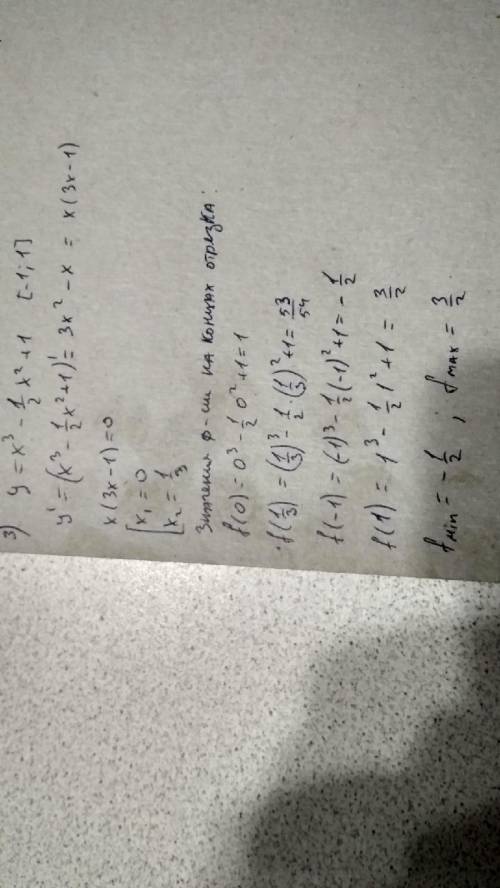 3) y = x³ - 1/2 x² + 1 [-1; 1]
y' = (x³ - 1/2 x² + 1)' = 3x² - x = x(3x - 1)
x(3x - 1) = 0
[ x₁ = 0
[ x₂ = 1/3
Значения ф-ии на концах отрезка:
f(0) = 0³ - 1/2 0² + 1 = 1
f(1/3) = (1/3)³ - 1/2 · (1/3)² + 1 = 53/54
f(-1) = (-1)³ - 1/2 (-1)² + 1 = - 1/2
f(1) = 1³ - 1/2 1² + 1 = 3/2
fmin = - 1/2 ; fmax = 3/2